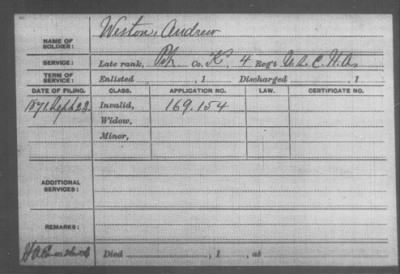 NAME OF SOLDIER: Weston, Andrew
SERVICE: Late rank, Pvt Co. K, 4 Reg't U.S.C.H.A.
TERM OF SERVICE: Enlisted , 1 Discharged , 1
DATE OF FILING. CLASS. APPLICATION NO. LAW. CERTIFICATE NO.
1871 Sept 22. Invalid, 169.154
Widow,
Minor,
ADDITIONAL SERVICES:
REMARKS:
Died , 1 , at